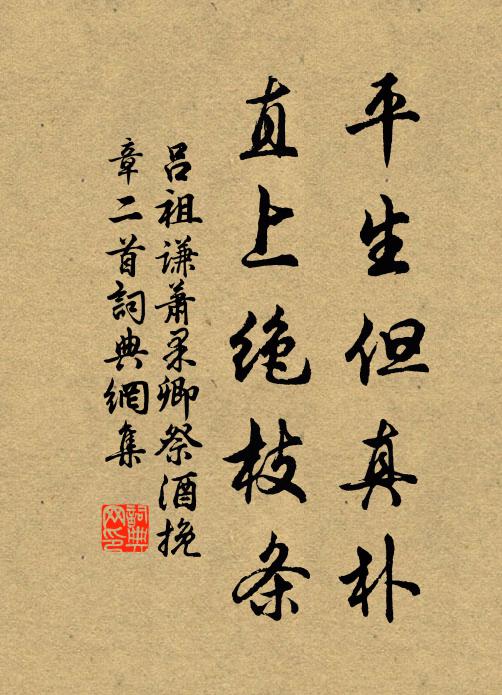 平生但真朴
直上绝枝条
吕祖谦萧果卿祭酒挽
章二首詞典網集
詞典网印